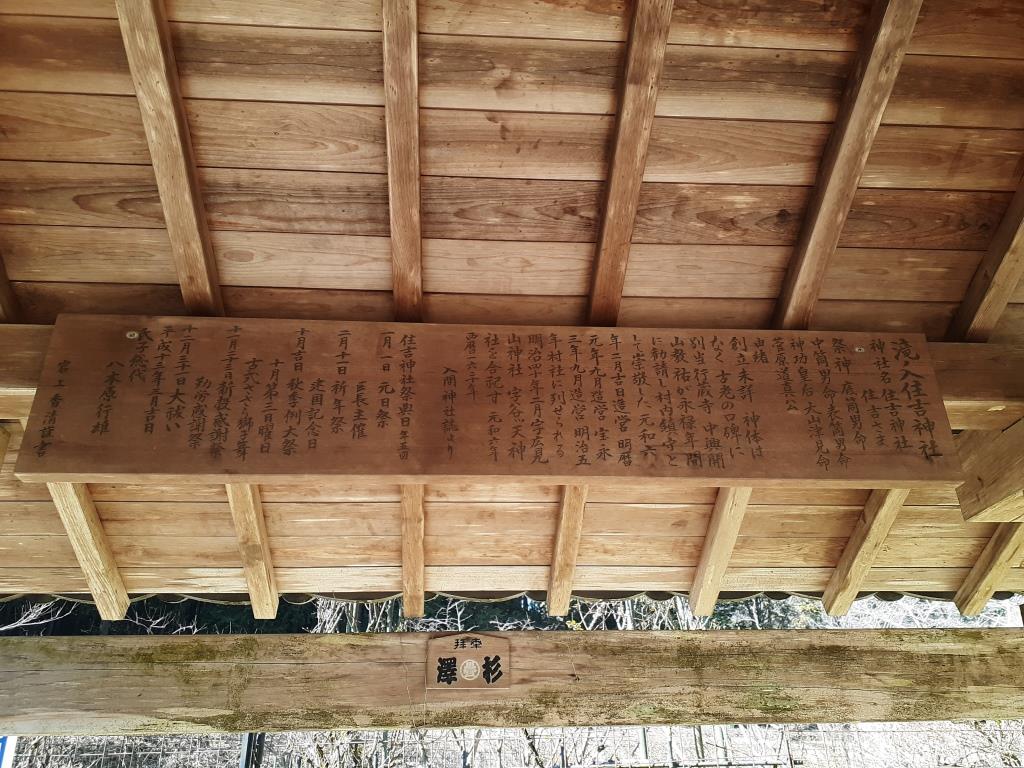 滝ノ入住吉神社
神社名 住吉神社
住吉さま
祭神 底筒男命
中筒男命 表筒男命
神功皇后 大山津見命
菅原道真公
由緒
創立未詳 神体は
なく 古老の口碑に
別当行蔵寺 中興開
山教祐が永禄年間
に勧請し村内鎮守と
して崇敬した 元和六
年二月吉日造営 明暦
元年九月造営 宝永
三年九月造営 明治五
年村社に列せられる
明治四十年二月字広見
山神社 字谷ツ天神
社を合祀す 元和六年
西暦一六二〇年
入間神社誌より
住吉神社祭典日 年五回
一月一日 元旦祭
区長主催
二月十一日 祈年祭
建国記念日
十月吉日 秋季例大祭
十月第二日曜日
古式ささら獅子舞
十一月二十三日 新穀感謝祭
勤労感謝祭
十二月三十一日 大祓い
平成十三年三月吉日
氏子総代
八木原行雄
宮上香清謹書
拝奉
杉
澤